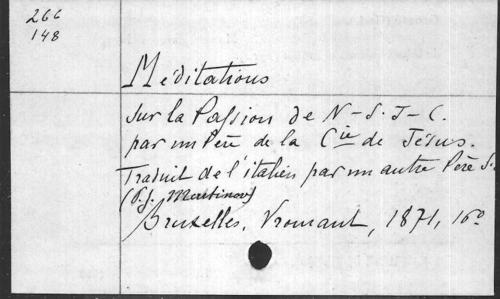 266
148
Méditations
sur la Passion de N-S. J-C.
par un Père de la Cie de Jésus.
Traduit de l'italien par un autre Père S.
(P. J. Martinov)
Bruxelles, Vromant, 1871, 16º